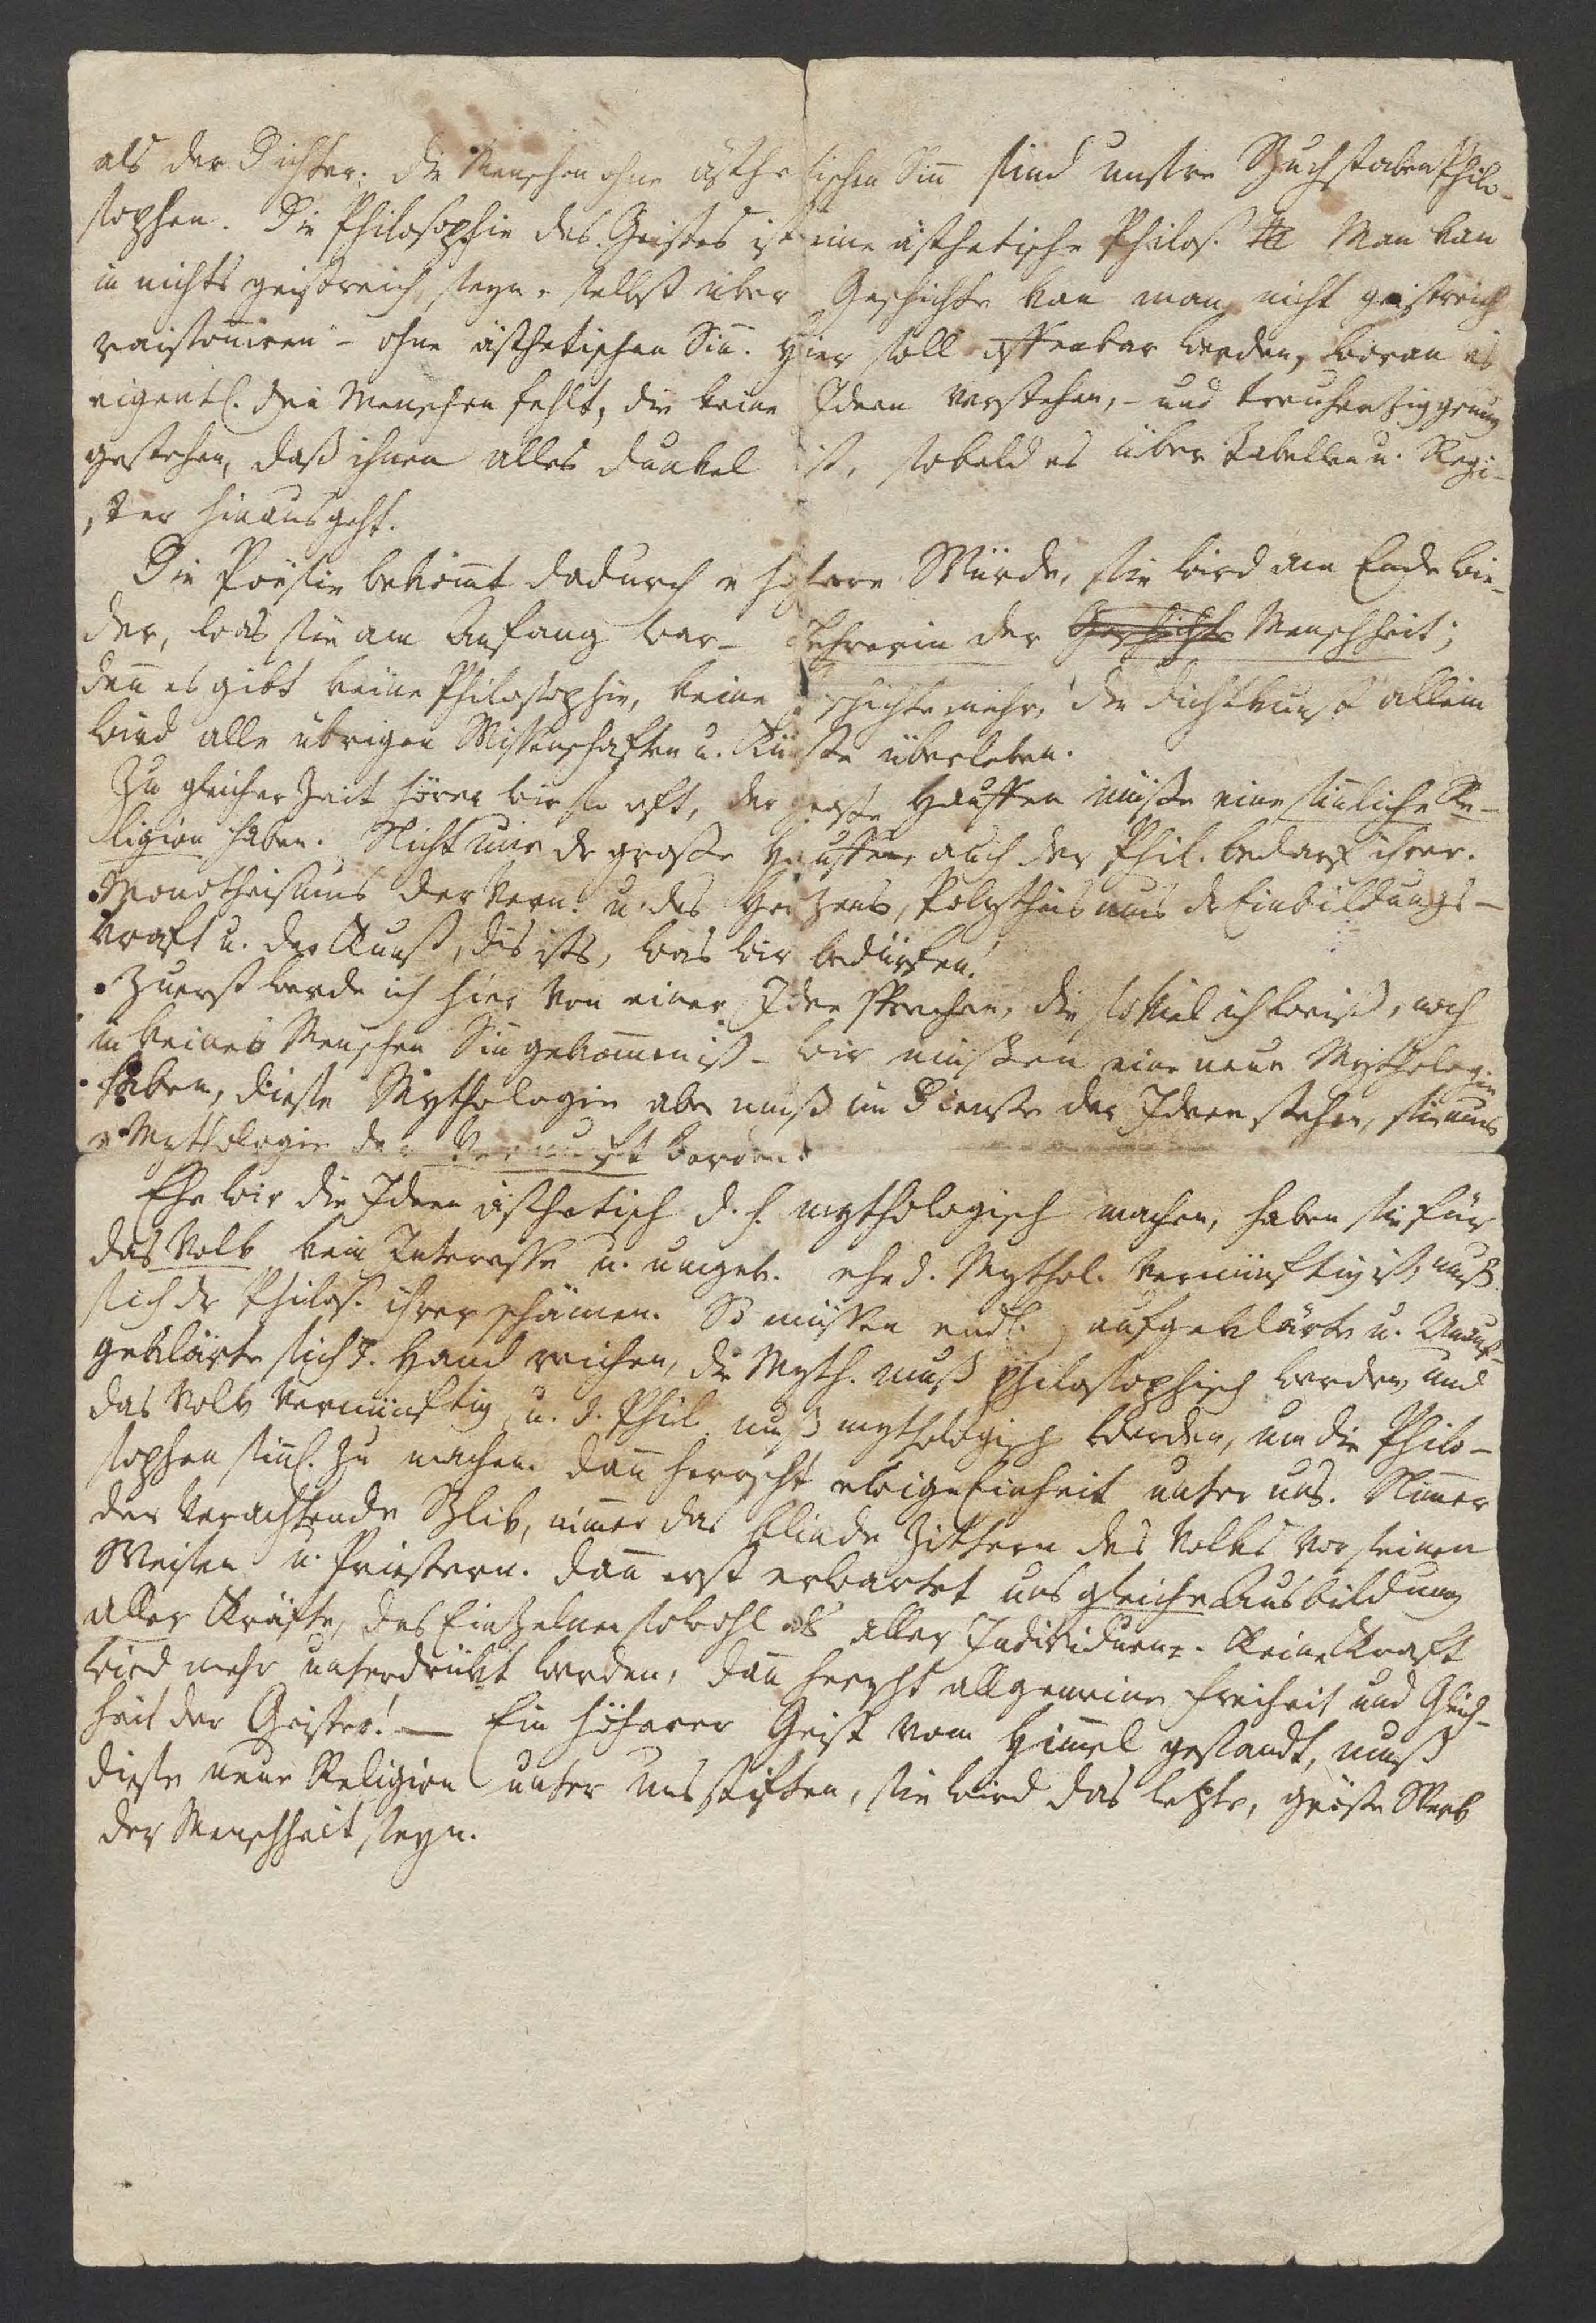 als der Dichter. die Menschen ohne ästhetischen Sinn sind unsre BuchstabenPhilo-
sophen. Die Philosophie des Geistes ist eine ästhetische Philos. Man kan
in nichts geistreich seyn, selbst über Geschichte kan man nicht geistreich
raisonniren – ohne ästhetischen Sinn. Hier soll offenbar werden, woran es
eigentl. den Menschen fehlt, die keine Ideen verstehen, – und treuherzig genug
gestehen, daß ihnen alles dunkel ist, sobald es über Tabellen u. Regi-
ster hinausgeht.
Die Poësie bekömmt dadurch e höhere Würde, sie wird am Ende wie-
der, was sie am Anfang war – Lehrerin der Geschichte Menschheit;
denn es gibt keine Philosophie, keine Geschichte mehr, die Dichtkunst allein
wird alle übrigen Wissenschaften u. Künste überleben.
Zu gleicher Zeit hören wir so oft, der große Hauffen müsse eine sinnliche Re-
ligion haben. Nicht nur dr große Hauffen, auch der Phil. bedarf ihrer.
Monotheismus der Vern. u. des Herzens, Polytheismus dr Einbildungs-
kraft u. der Kunst, dis ists, was wir bedürfen!
Zuerst werde ich hier von einer Idee sprechen, die so viel ich weiß, noch
in keines Menschen Sinn gekommen ist – wir müssen eine neue Mythologie
haben, diese Mythologie aber muß im Dienste der Ideen stehen, sie mus
e Mythologie der Vernunft werden.
Ehe wir die Ideen ästhetisch d. h. mythologisch machen, haben sie für
das Volk kein Interesse u. umgek. ehe d. Mythol. vernünftig ist, muß
sich dr Philos. ihrer schämen. So müssen endl. aufgeklärte u. Unauf-
geklärte sich d. Hand reichen, die Myth. muß philosophisch werden, und
das Volk vernünftig, u. d. Phil. muß mythologisch werden, um die Philo-
sophen sinnl. zu machen. dann herrscht ewige Einheit unter uns. Nimmer
der verachtende Blik, nimmer das blinde Zittern des Volks vor seinen
Weisen u. Priestern. dann erst erwartet uns gleiche Ausbildung
aller Kräfte, des Einzelnen sowohl als aller Individuen. Keine Kraft
wird mehr unterdrükt werden, dann herrscht allgemeine Freiheit und Gleich-
heit der Geister! – Ein höherer Geist vom Himmel gesandt, muß
diese neue Religion unter uns stiften, sie wird das letzte, gröste Werk
der Menschheit seyn.